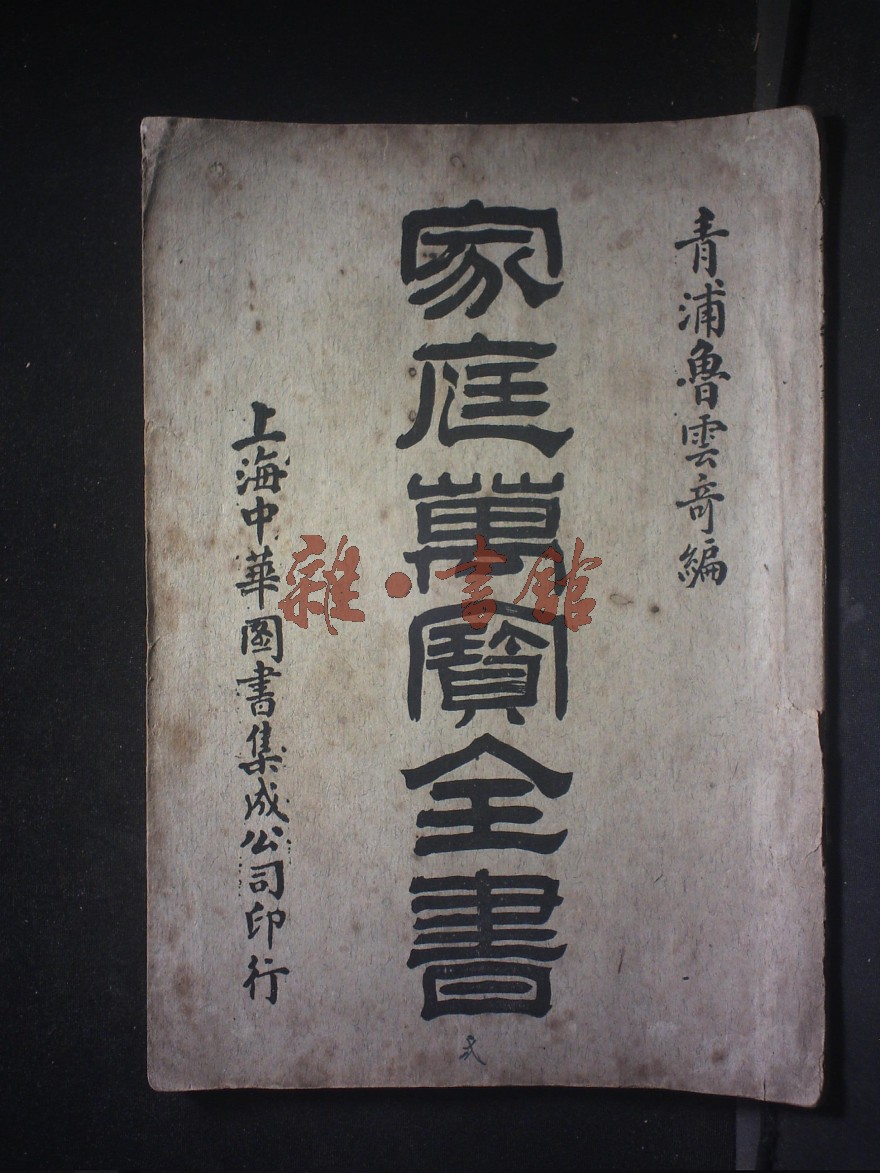 青浦魯雲奇編
家庭萬寶全書
上海中華圖書集成公司印行
雜·書館
弍